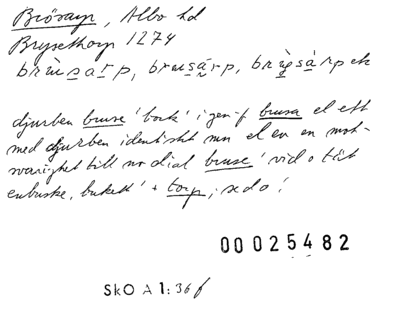 Brösarp, Albo hd
Brysethorp 1274
brùsarp, brusárp, brùsárpek
djurben bruse 'bock' i gen-f brusa el ett
med djurben identiskt mn el en en mot-
svarighet till no dial bruse 'vid o tät
enbuske, bukett' + torp; se do!
00025482
SkO A 1: 36 f